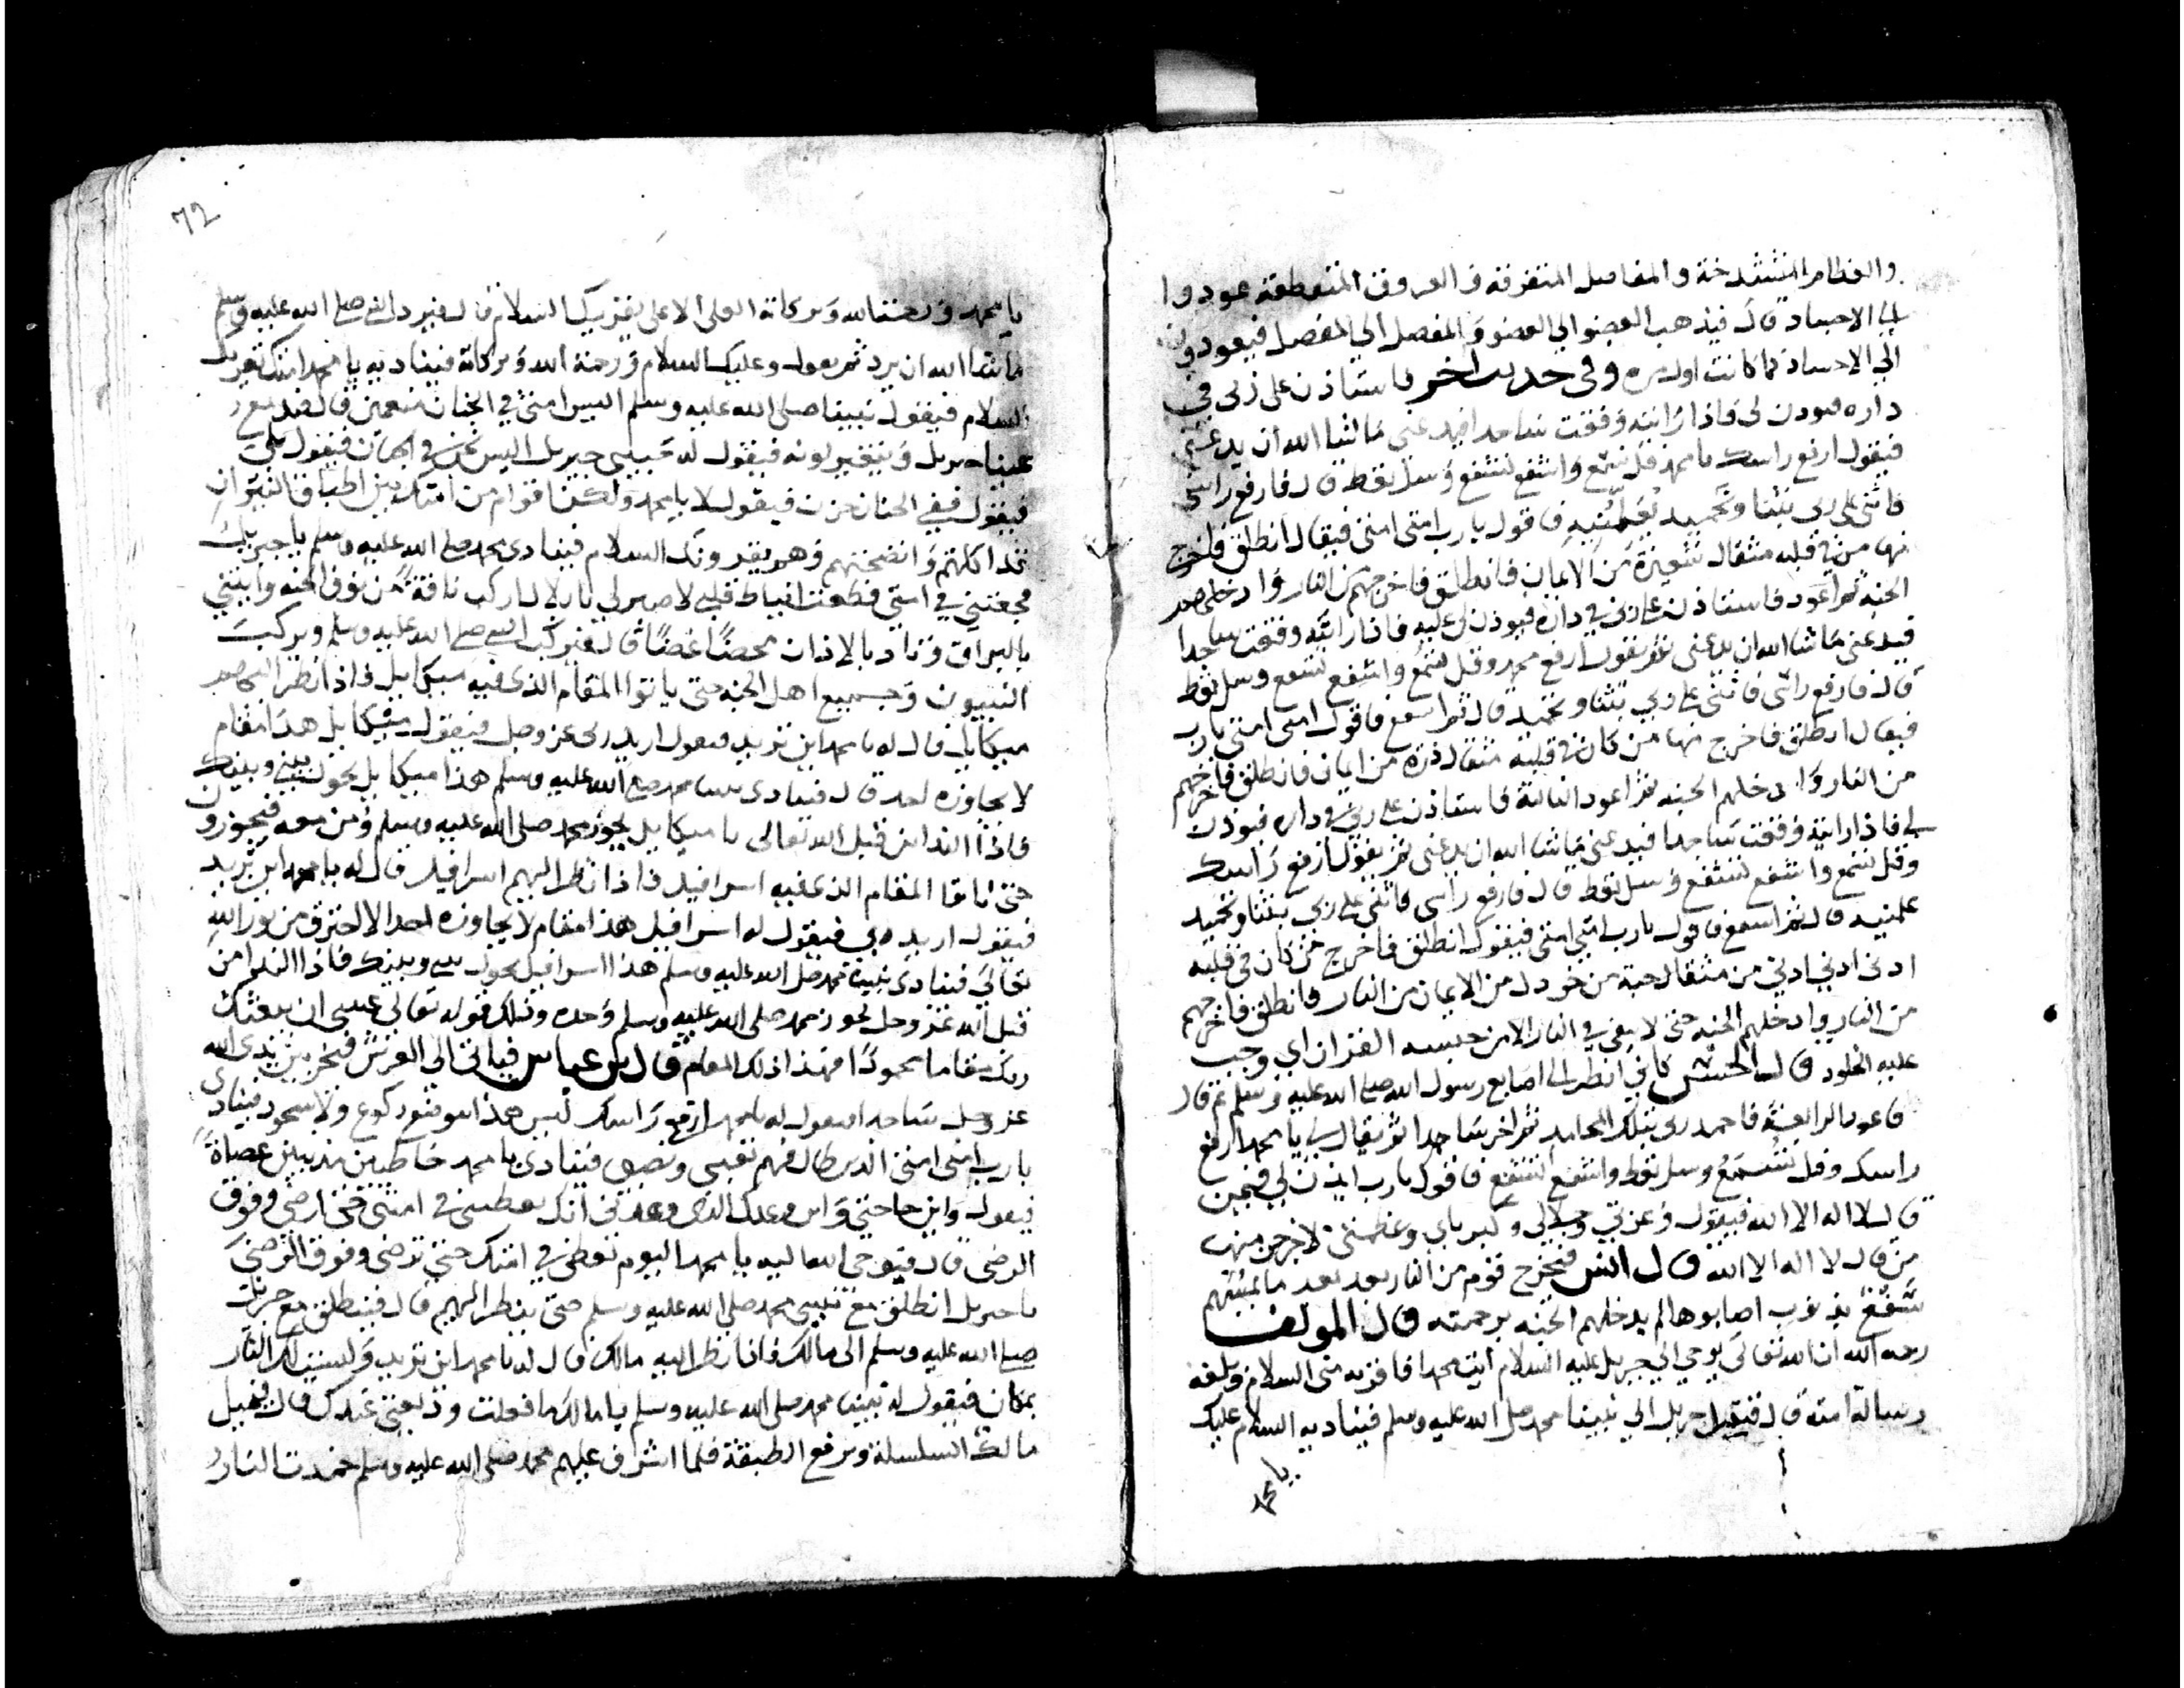 والعظام المتشدخة والمفاصل المتفرقة والعروق المتقطعة عودوا
الى الاجساد قال فيذهب العضو الى العضو والمفصل الى المفصل فيعودون
الى الاجساد كما كانت اول مره وفى حديث اخر فاستاذن على ربى في
داره فيوذن لى فاذا رايته وقعت ساجدا فيدعنى ما شا الله أن يدعنى
فيقول ارفع راسك يا محمد قل تسمع واشفع تشفع وسل تعط قال فارفع راسى
فاثنى على ربى بثنا وتحميد يعلمنيه فاقول يا رب امتى امتى فيقال انطلق فاخرج
منها من في قلبه مثقال شعيرة من الايمان فانطلق فاخرجهم من النار وادخلهم
الجنه ثم اعود فاستاذن على ربى في داره فيوذن لى عليه فاذا رايته وقعت ساجدا
فيدعنى ما شا الله ان يدعنى ثم يقول ارفع محمد وقل تسمع واشفع تشفع وسل تعط
قال فارفع راسى فاثنى على ربي بثنا وتحميد قال ثم اشفع فاقول امتى امتى يا رب
فيقال انطلق فاخرج منها من كان في قلبه مثقال ذره من ايمان فانطلق فاخرجهم
من النار وادخلهم الجنه ثم اعود الثالثة فاستاذن على ربى في داره فيوذن
لى فاذا رايته وقعت ساجدا فيدعنى ما شا الله ان يدعنى ثم يقول ارفع راسك
وقل تسمع واشفع تشفع وسل تعط قال فارفع راسى فاثنى على ربى بثنا وتحميد
علمنيه قال ثم اشفع فاقول يا رب امتى امتى فيقول انطلق فاخرج من كان في قلبه
ادنى ادنى ادنى من مثقال حبة من خردل من الايمان من النار فانطلق فاخرجهم
من النار وادخلهم الجنه حتى لا يبقى في النار الا من حبسه القران اي وجب
عليه الخلود قال الحسن كانى انظر الى اصابع رسول الله صلى الله عليه وسلم ثم قال
فاعود الرابعة فاحمد ربى بتلك المحامد ثم اخر ساجدا ثم يقال لى يا محمد ارفع
راسك وقل تسمع وسل تعط واشفع تشفع فاقول يا رب ايذن لي فيمن
قال لا اله الا الله فيقول وعزتى وجلالى وكبرياي وعظمتى لاخرجن منها
من قال لا اله الا الله قال انس فيخرج قوم من النار بعد بعد ما
سفع بذنوب اصابوها لم يدخلهم الجنه برحمته قال المولف
رحمه الله ان الله تعالى يوحي الى جبريل عليه السلام ايت محمدا فاقريه منى السلام وبلغه
رسالة امته قال فيقبل جبريل الى نبينا محمد صلى الله عليه وسلم فيناديه السلام عليك
يا محمد
72
يا محمد ورحمت الله وبركاته العلى الاعلى يقريك السلام قال فيرد النبى صلى الله عليه وسلم
ما شا الله ان يرد ثم يقول وعليك السلام ورحمة الله وبركاته فيناديه يا محمد امتك تقريك
السلام فيقول نبينا صلى الله عليه وسلم اليس امتى في الجنان منعمين قال
عينا جبريل ويتغير لونه فيقول له حبيبى جبريل اليس نحن في الجنان فيقول بلى
فيقول ففي الجنان حزن فيقول لا يا محمد ولكن اقوام من امتك بين اطباق النيران
قد اكلتهم وانضجتهم وهم يقرونك السلام فينادى محمد صلى الله عليه وسلم يا جبريل
فجعتنى في امتى فقطعت انياط قلبى لا صبر لى يا بلال اركب ناقة من نوق الجنه وايتنى
بالبراق وناد بالاذان محضا غضا قال فيركب النبى صلى الله عليه وسلم ويركب
النبيون وجميع اهل الجنه حتى ياتوا المقام الذى فيه ميكاييل فاذا نظر اليهم
ميكاييل قال له يا محمد اين تريد فيقول اريد ربى عز وجل فيقول ميكاييل هذا مقام
لا يجاوزه احد قال فينادى نبينا محمد صلى الله عليه وسلم هذا ميكاييل يحول بينى وبينك
فاذا الندا من قبل الله تعالى يا ميكاييل يجوز محمد صلى الله عليه وسلم ومن معه فيجوزون
حتى ياتوا المقام الذ عليه اسرافيل فاذا نظر اليهم اسرافيل قال له يا محمد اين تريد
فيقول اريد ربى فيقول له اسرافيل هذا مقام لا يجاوزه احد الا احترق من نور الله
تعالى فينادى نبينا محمد صلى الله عليه وسلم هذا اسرافيل يحول بينى وبينك فاذا الندا من
قبل الله عز وجل يجوز محمد صلى الله عليه وسلم وحده وذلك قوله تعالى عسى ان يبعثك
ربك مقاما محمودا فهذا ذلك المقام قال بن عباس فياتى الى العرش فيخر بين يدى الله
عز وجل ساجدا فيقول له يا محمد ارفع راسك ليس هذا موضع ركوع ولا سجود فينادى
يا رب امتى امتى الذين طال فيهم تعبى ونصبى فينادى يا محمد خاطين مذنبين عصاة
فيقول واين حاجتى واين وعدك الذى وعدتنى انك تعطينى في امتى حتى ارضى وفوق
الرضى قال فيوحى الله اليه يا محمد اليوم تعطى في امتك حتى ترضى وفوق الرضى
يا جبريل انطلق مع نبيى محمد صلى الله عليه وسلم حتى ينظر اليهم قال فينطلق مع جبريل
صلى الله عليه وسلم الى مالك فاذا نظر اليه مالك قال له يا محمد اين تريد وليست لك النار
بمكان فيقول له نبينا محمد صلى الله عليه وسلم يا مالك ما فعلت وديعتى عندك قال فيقبل
مالك السلسلة ويرفع الطبقة فلما اشرف عليهم محمد صلى الله عليه وسلم خمدت النار